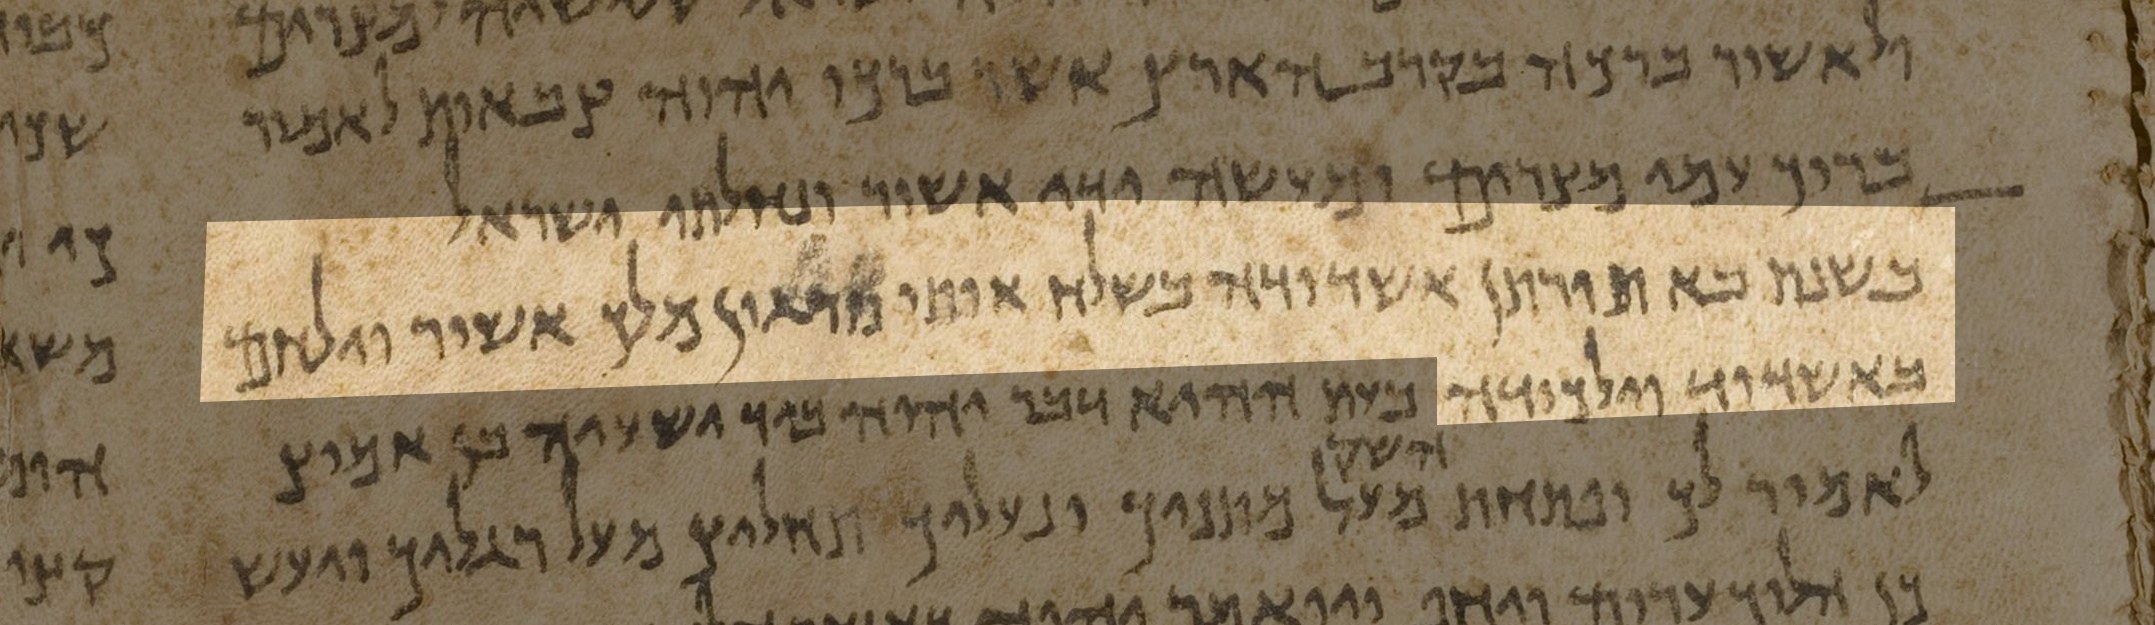 ולאשור ברכה בקרב הארץ אשר ברכו יהוה צבאות לאמור
ברוך עמי מצרים ומעשה ידי אשור ונחלתי ישראל
בשנת בא תורתן אשדודה בשלח אותו סרגון מלך אשור וילחם
באשדוד וילכודה בעת ההיא דבר יהוה ביד ישעיה בן אמוץ
השק
לאמור לך ופתחת מעל מתניך ונעליך תחליץ מעל רגליך ויעש
כן הלוך ערום ויחף ויואמר יהוה